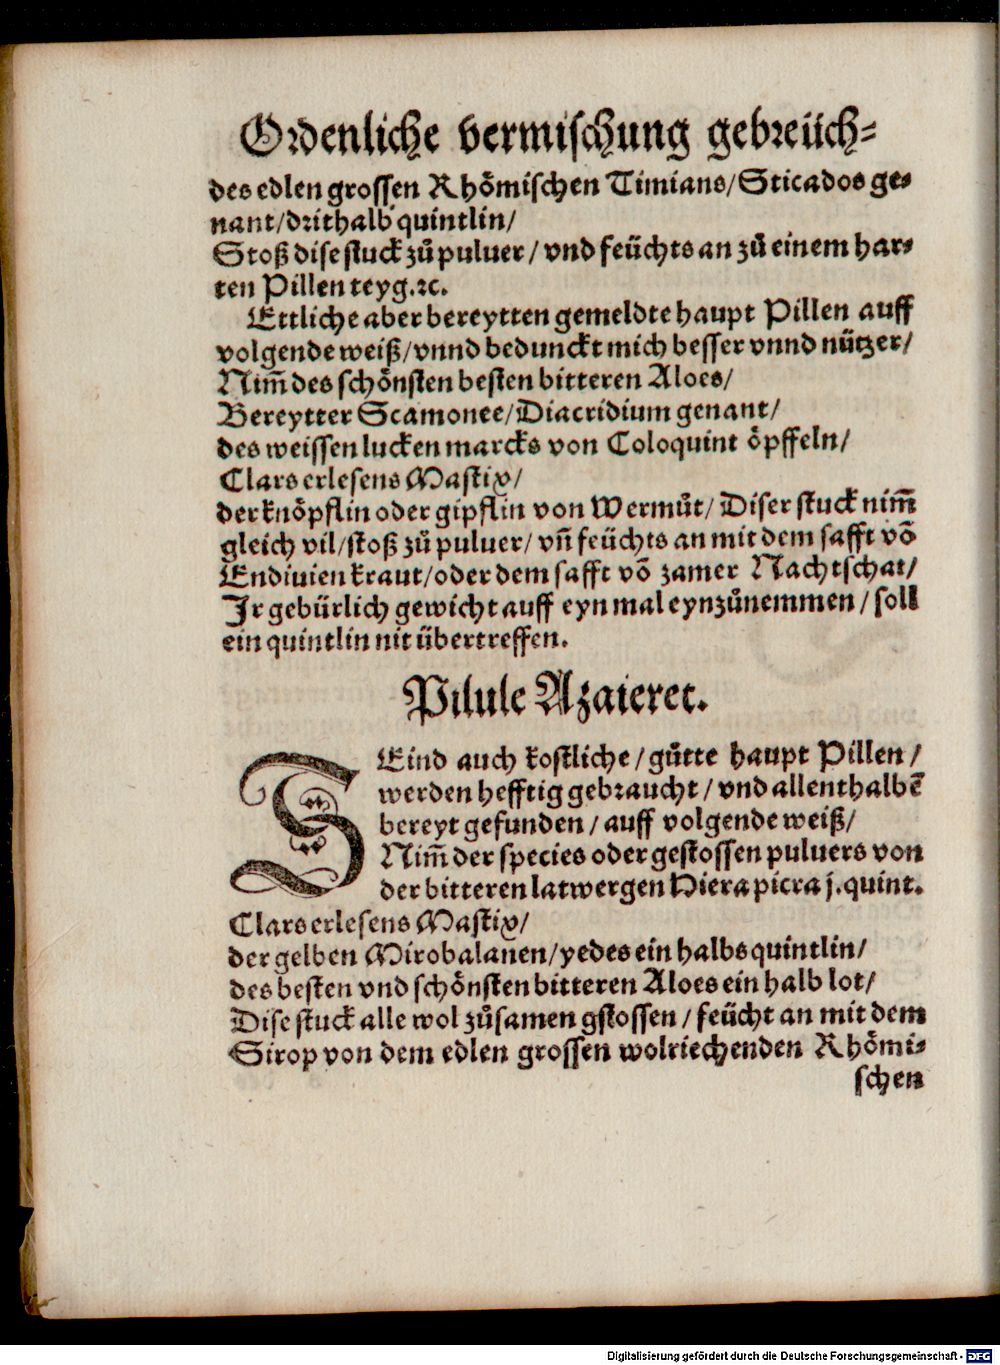 Ordenliche vermischung gebreüch⸗
des edlen grossen Rhömischen Timians/Sticados ge⸗
nant/drithalb quintlin/
Stoß dise stuck zů puluer/ vnd feüchts an zů einem har⸗
ten Pillen teyg.ꝛc.
Ettliche aber bereytten gemeldte haupt Pillen auff
volgende weiß/vnnd bedunckt mich besser vnnd nützer/
Nim̃ des schönsten besten bitteren Aloes/
Bereytter Scamonee/Diacridium genant/
des weissen lucken marcks von Coloquint öpffeln/
Clars erlesens Mastix/
der knöpflin oder gipflin von Wermůt/ Diser stuck nim̃
gleich vil/stoß zů puluer/ vñ feüchts an mit dem safft võ
Endiuien kraut/oder dem safft võ zamer Nachtschat/
Ir gebürlich gewicht auff eyn mal eynzůnemmen/ soll
ein quintlin nit übertreffen.
Pilule Azaieret.
SEind auch kostliche/gůtte haupt Pillen/
werden hefftig gebraucht/ vnd allenthalbẽ
bereyt gefunden/ auff volgende weiß/
Nim̃ der species oder gestossen puluers von
der bitteren latwergen Hiera picra j.quint.
Clars erlesens Mastix/
der gelben Mirobalanen/yedes ein halbs quintlin/
des besten vnd schönsten bitteren Aloes ein halb lot/
Dise stuck alle wol zůsamen gstossen/ feücht an mit dem
Sirop von dem edlen grossen wolriechenden Rhömi⸗
schen
Digitalisierung gefördert durch die Deutsche Forschungsgemeinschaft - DFG